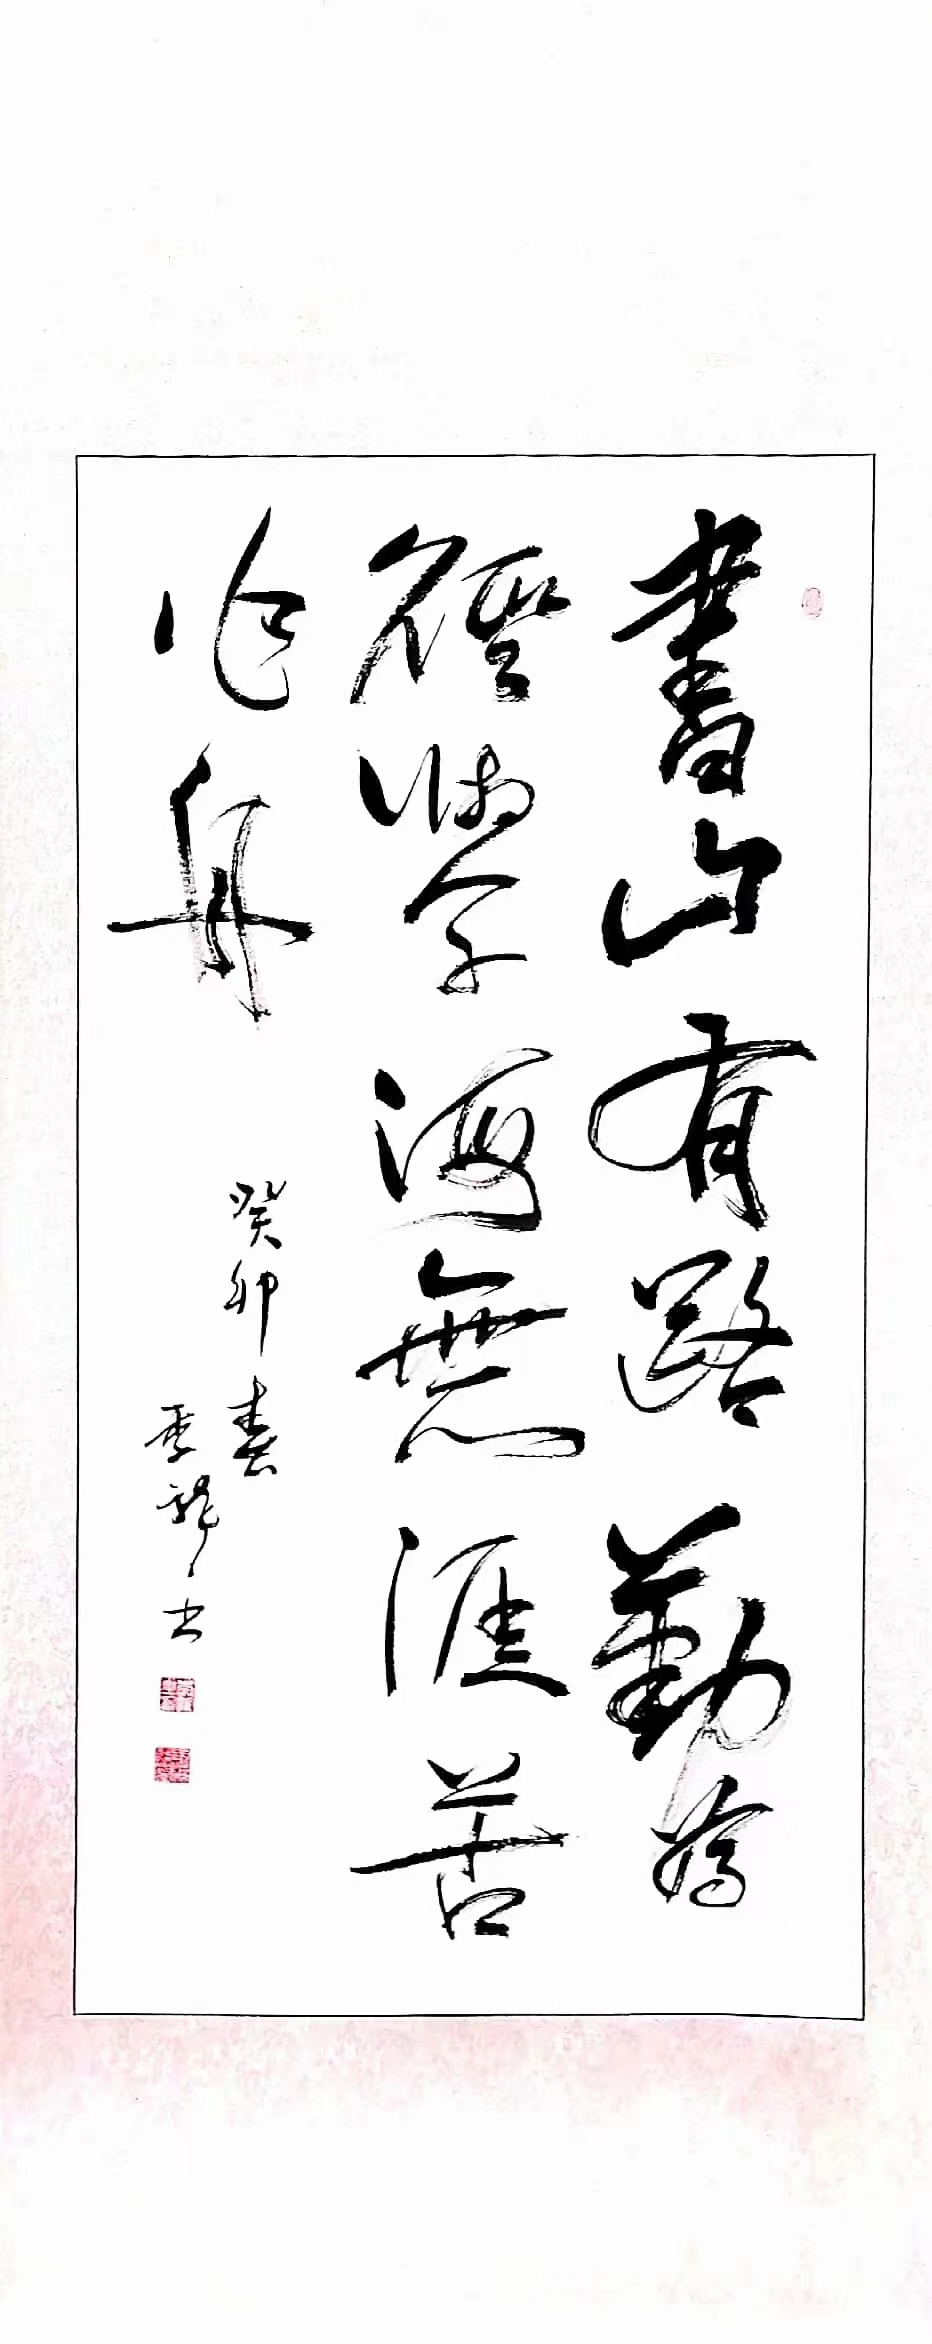 書山有路勤為
徑學海無涯苦
作舟
癸卯春
季龍书